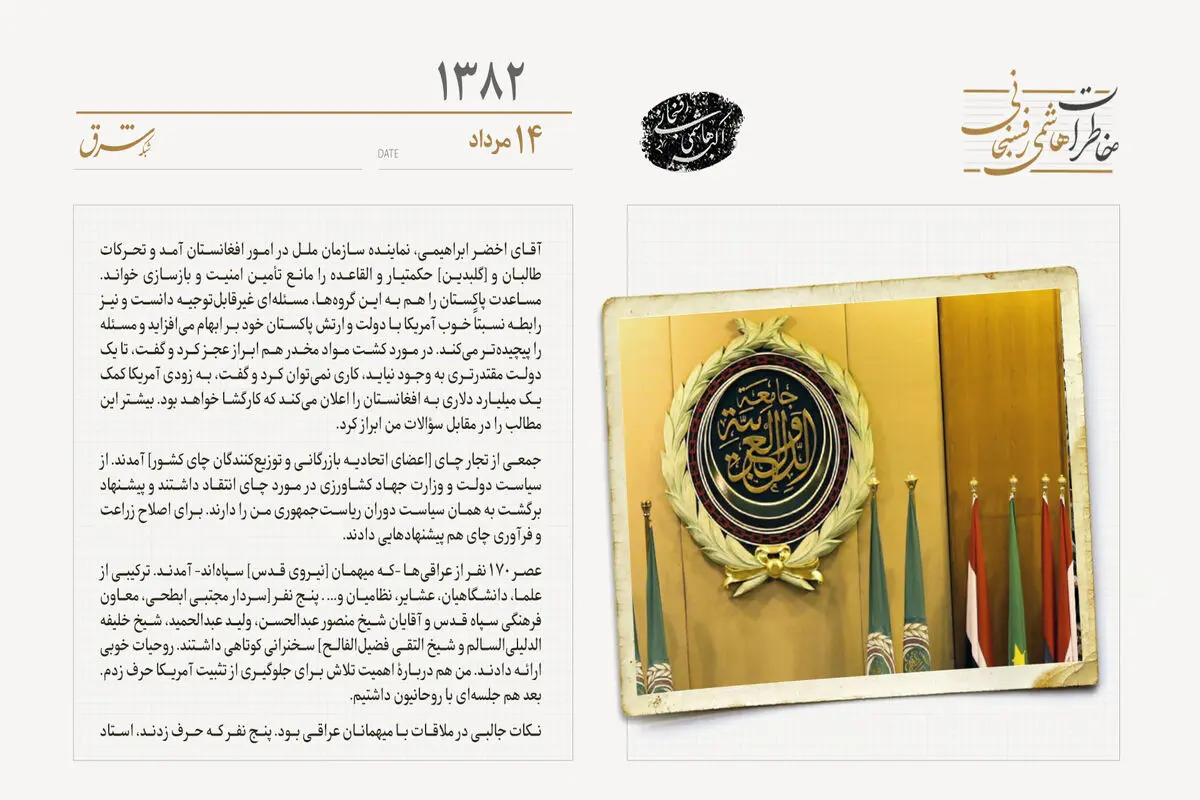 خاطرات
هاشمی رفسنجانی
اکبر هاشمی رفسنجانی
۱۳۸۲
۱۴ مرداد
DATE
شبکه شرق
آقـای اخضـر ابراهیمـی، نماینـده سـازمان ملـل در امـور افغانسـتان آمـد و تحـرکات
طالبـان و [گلبدیـن] حکمتیـار و القاعـده را مانـع تأمیـن امنیـت و بازسـازی خوانـد.
مسـاعدت پاکسـتان را هـم بـه ایـن گروه‌هـا، مسـئله‌ای غیرقابل‌توجیـه دانسـت و نیـز
رابطـه نسـبتاً خـوب آمریـکا بـا دولـت و ارتش پاکسـتان خود بـر ابهام می‌افزایـد و مسـئله
را پیچیده‌تـر می‌کنـد. در مـورد کشـت مـواد مخـدر هـم ابـراز عجـز کـرد و گفـت، تـا یک
دولـت مقتدرتـری بـه وجـود نیایـد، کاری نمی‌تـوان کـرد و گفـت، بـه زودی آمریـکا کمک
یـک میلیـارد دلاری بـه افغانسـتان را اعلان می‌کنـد کـه کارگشـا خواهـد بود. بیشـتر این
مطالب را در مقابل سؤالات من ابراز کرد.
جمعـی از تجار چـای [اعضای اتحادیـه بازرگانـی و توزیع‌کنندگان چای کشـور] آمدند. از
سیاسـت دولـت و وزارت جهـاد کشـاورزی در مـورد چـای انتقـاد داشـتند و پیشـنهاد
برگشـت به همـان سیاسـت دوران ریاسـت‌جمهوری مـن را دارنـد. بـرای اصلاح زراعت
و فرآوری چای هم پیشنهادهایی دادند.
عصـر ۱۷۰ نفـر از عراقی‌هـا -کـه میهمـان [نیـروی قـدس] سـپاه‌اند- آمدنـد. ترکیبـی از
علمـا، دانشـگاهیان، عشـایر، نظامیـان و.... پنـج نفـر [سـردار مجتبـی ابطحـی، معـاون
فرهنگی سـپاه قـدس و آقایان شـیخ منصور عبدالحسـن، ولیـد عبدالحمید، شـیخ خلیفه
الدلیلی‌السـالم و شـیخ التقـی فضیل‌الفالـح] سـخنرانی کوتاهی داشـتند. روحیـات خوبی
ارائـه دادنـد. من هم دربـارۀ اهمیت تلاش بـرای جلوگیـری از تثبیت آمریـکا حرف زدم.
بعد هم جلسه‌ای با روحانیون داشتیم.
نـکات جالبـی در ملاقـات بـا میهمانـان عراقـی بـود. پنـج نفـر کـه حـرف زدنـد، اسـتاد
جامعة
الدول العربية